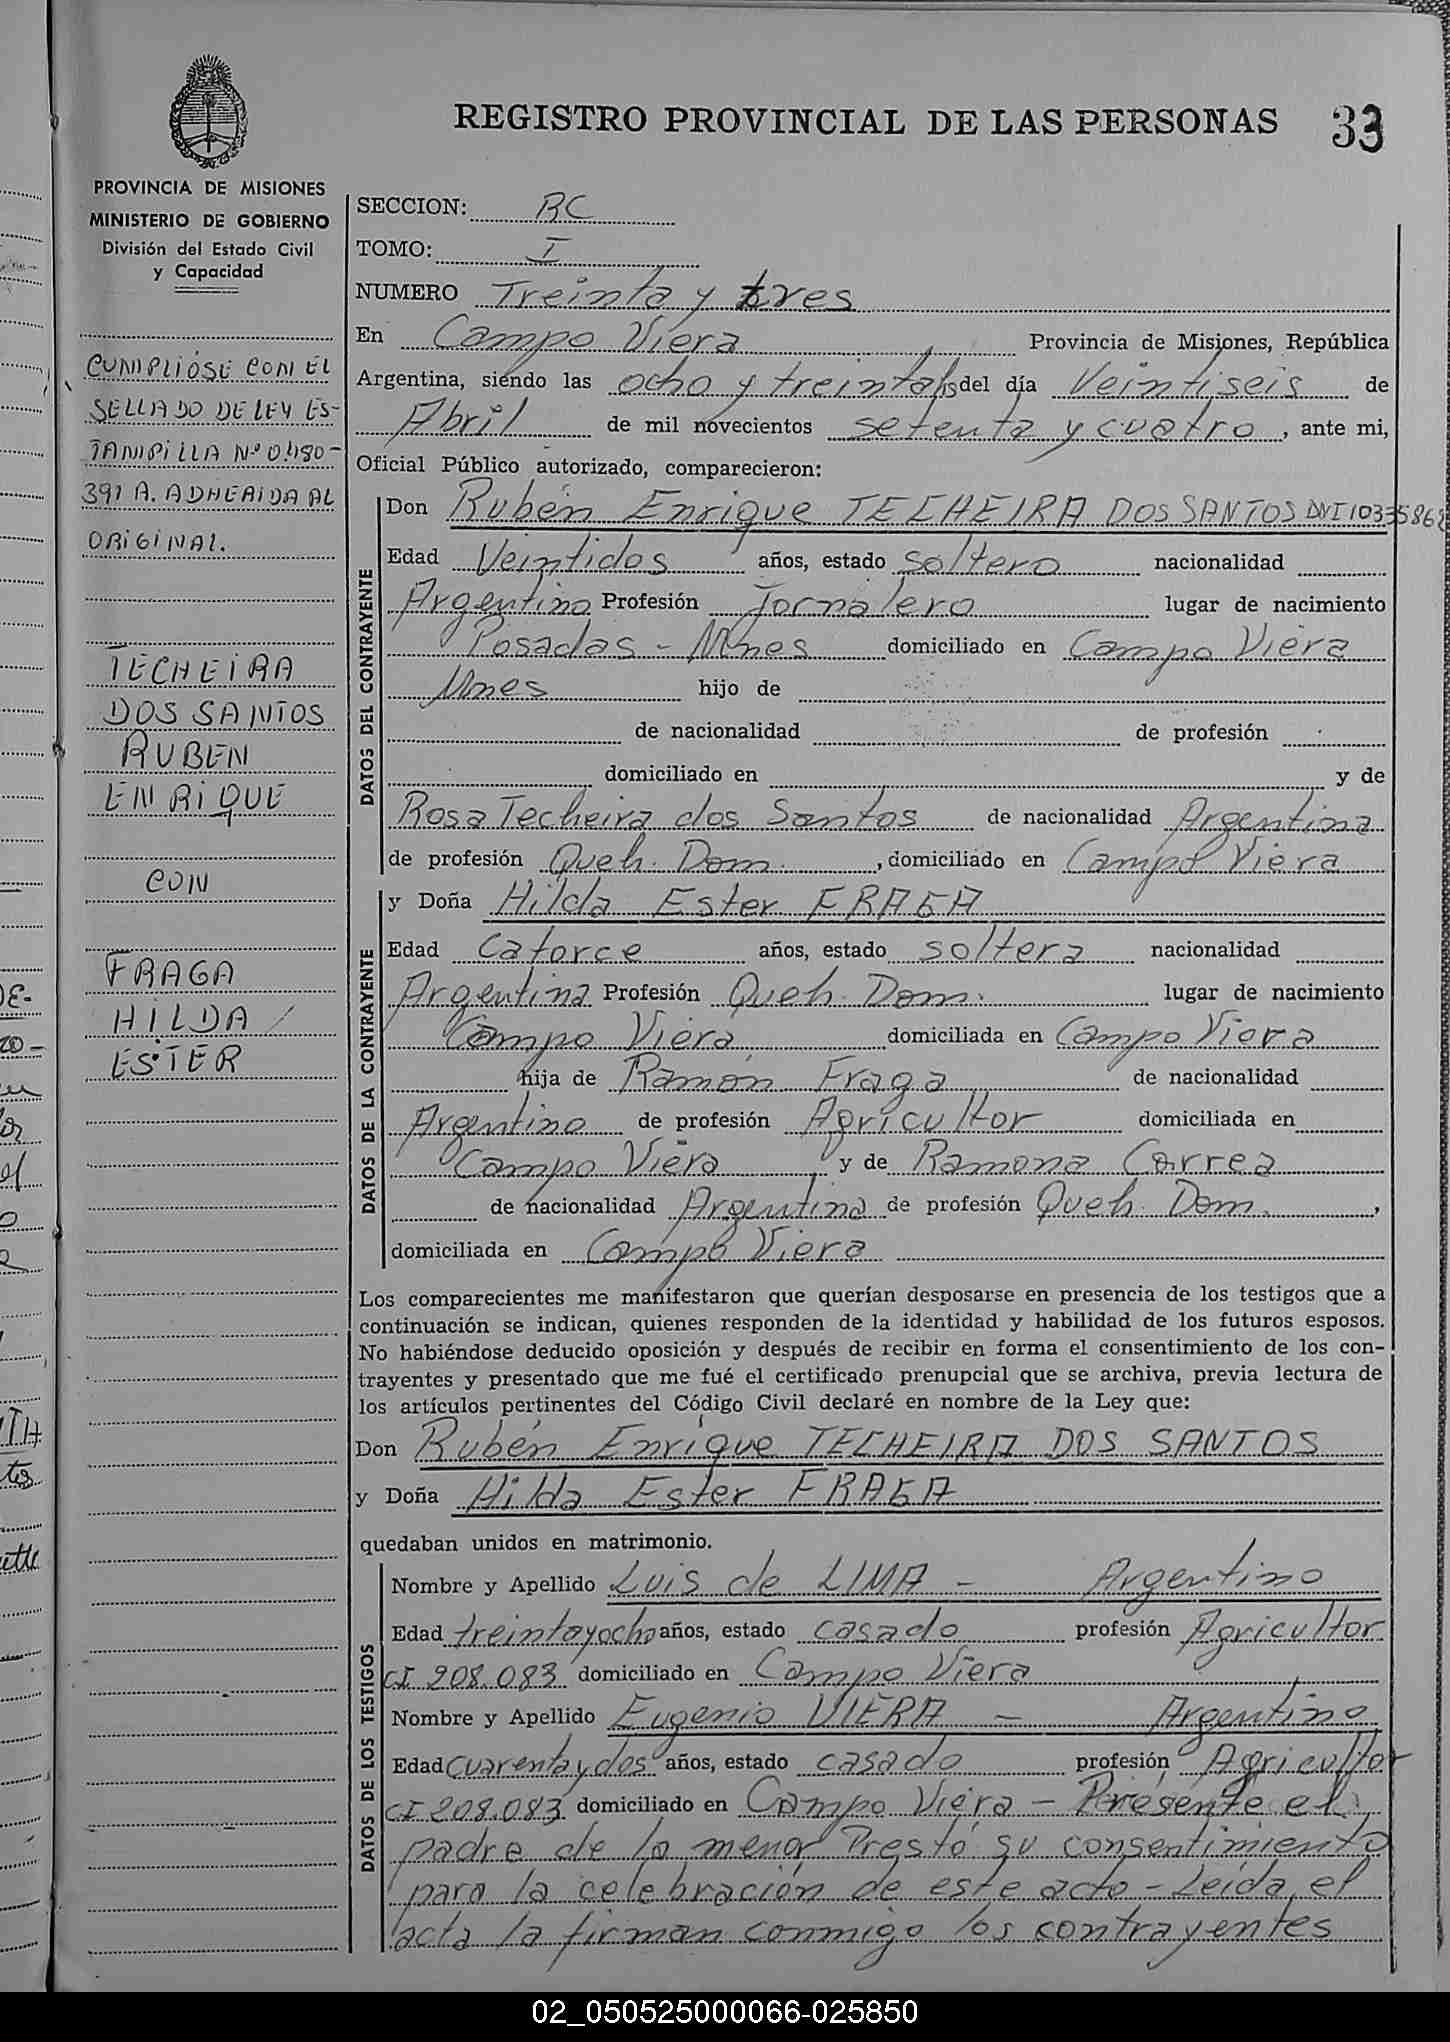 REGISTRO PROVINCIAL DE LAS PERSONAS 33
PROVINCIA DE MISIONES
MINISTERIO DE GOBIERNO
División del Estado Civil
y Capacidad
CUMPLIÓSE CON EL
SELLADO DE LEY ES-
TAMPILLA Nº 0.480-
391 A. ADHERIDA AL
ORIGINAL.
TECHEIRA
DOS SANTOS
RUBEN
ENRIQUE
CON
FRAGA
HILDA
ESTER
SECCION: RC
TOMO: I
NUMERO Treinta y tres
En Campo Viera Provincia de Misiones, República
Argentina, siendo las ocho y treinta hs del día Veintiseis de
Abril de mil novecientos setenta y cuatro, ante mi,
Oficial Público autorizado, comparecieron:
DATOS DEL CONTRAYENTE
Don Rubén Enrique TECHEIRA DOS SANTOS DNI 10335868
Edad Veintidos años, estado soltero nacionalidad
Argentino Profesión Jornalero lugar de nacimiento
Posadas - Mnes domiciliado en Campo Viera
Mnes hijo de
de nacionalidad de profesión
domiciliado en y de
Rosa Techeira dos Santos de nacionalidad Argentina
de profesión Queh. Dom. , domiciliado en Campo Viera
DATOS DE LA CONTRAYENTE
y Doña Hilda Ester FRAGA
Edad Catorce años, estado soltera nacionalidad
Argentina Profesión Queh. Dom. lugar de nacimiento
Campo Viera domiciliada en Campo Viera
hija de Ramón Fraga de nacionalidad
Argentino de profesión Agricultor domiciliada en
Campo Viera y de Ramona Correa
de nacionalidad Argentina de profesión Queh. Dom. ,
domiciliada en Campo Viera
Los comparecientes me manifestaron que querían desposarse en presencia de los testigos que a
continuación se indican, quienes responden de la identidad y habilidad de los futuros esposos.
No habiéndose deducido oposición y después de recibir en forma el consentimiento de los con-
trayentes y presentado que me fué el certificado prenupcial que se archiva, previa lectura de
los artículos pertinentes del Código Civil declaré en nombre de la Ley que:
Don Rubén Enrique TECHEIRA DOS SANTOS
y Doña Hilda Ester FRAGA
quedaban unidos en matrimonio.
DATOS DE LOS TESTIGOS
Nombre y Apellido Luis de LIMA - Argentino
Edad treintayocho años, estado casado profesión Agricultor
CI 208.083 domiciliado en Campo Viera
Nombre y Apellido Eugenio VIERA - Argentino
Edad cuarentaydos años, estado casado profesión Agricultor
CI 208.083 domiciliado en Campo Viera - Presente el
padre de la menor Prestó su consentimiento
para la celebración de este acto - Leída el
acta la firman conmigo los contrayentes
02_050525000066-025850